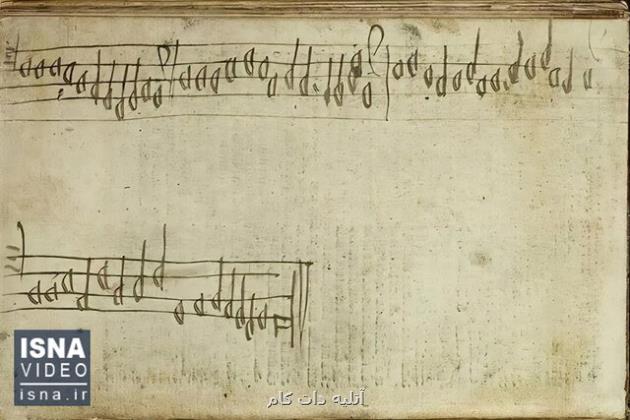 ISNA
VIDEO
isna.ir
آتلیه دات کام